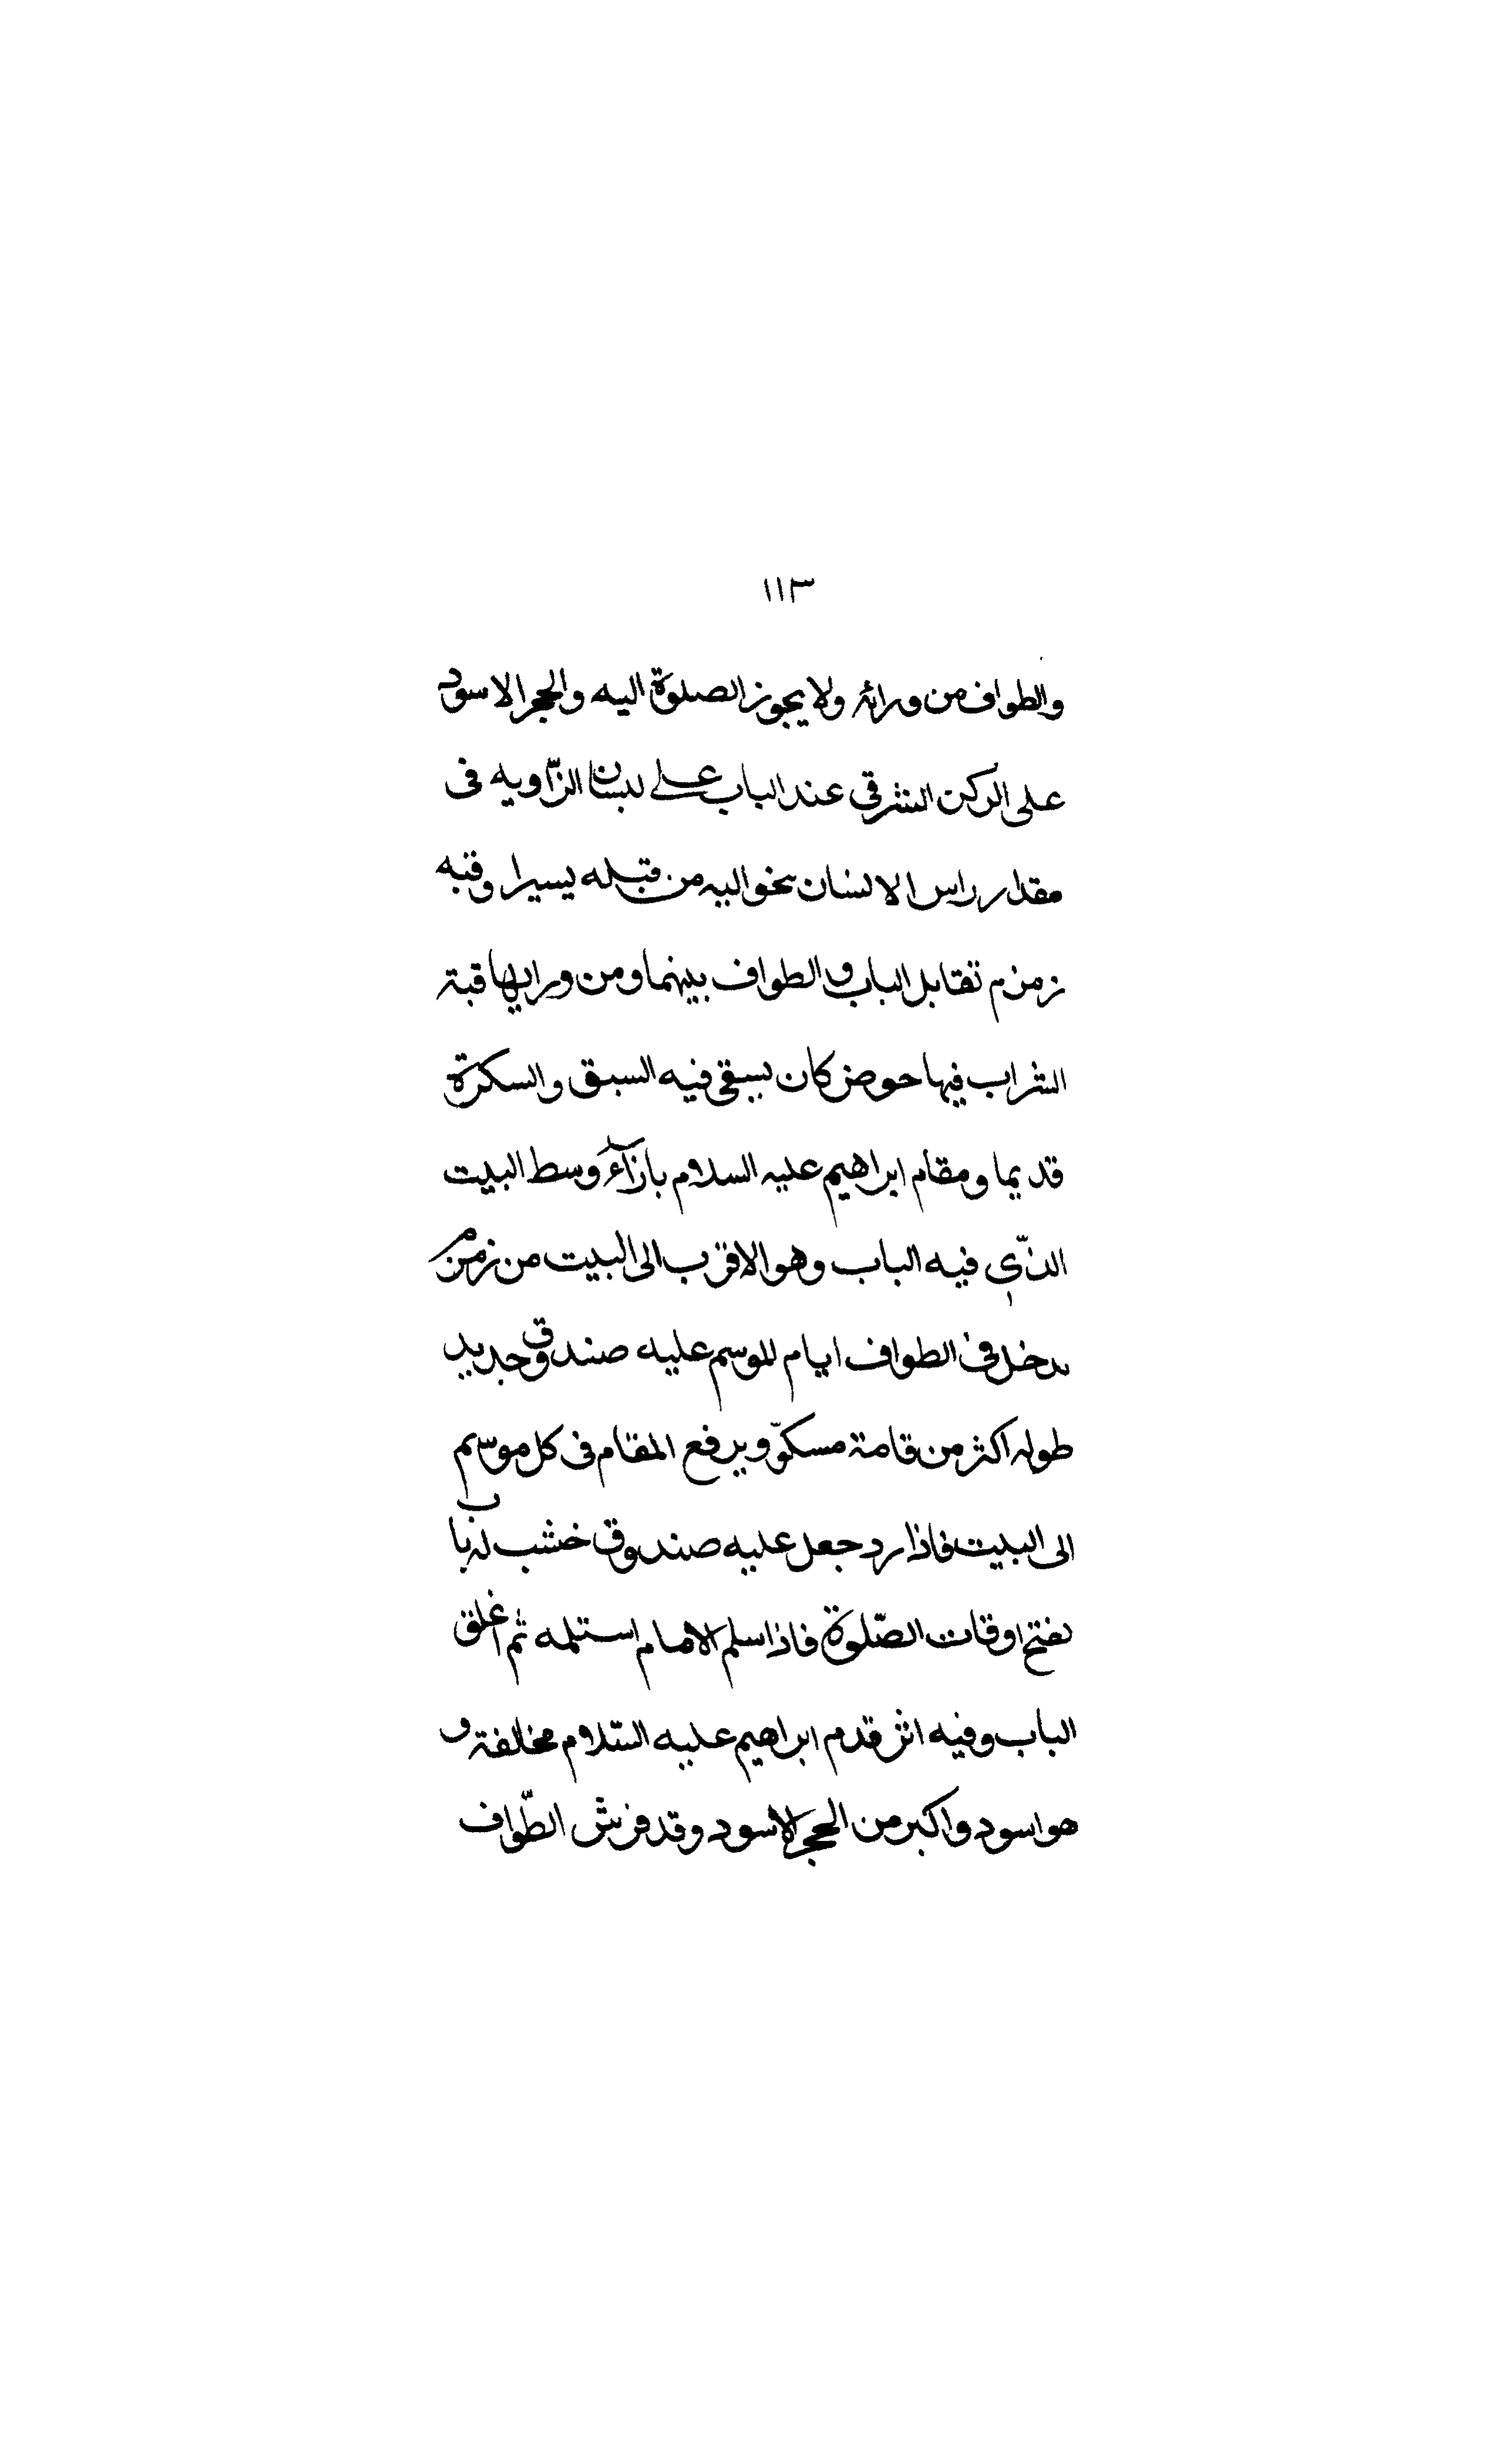 ١١٣
والطواف من ورائه ولا يجوز الصلوة اليه والحجر الاسود
على الركن الشرقي عند الباب على لسان الزّاويه فى
مقدار راس الانسان ينحو اليه من قبله يسيرا وقبه
زمزم تقابل الباب والطواف بينهما ومن ورايها قبة
الشراب فيها حوض كان يسقى فيه السبق والسكرة
قديما ومقام ابراهيم عليه السلام بازآء وسط البيت
الذّى فيه الباب وهو الاقرب الى البيت من زمزم
يدخل فى الطواف ايام الموسم عليه صندوق حديد
طوله اكثر من قامة مسكوّ ويرفع المقام فى كل موسم
الى البيت فاذا رد جعل عليه صندوق خشب له باب
يفتح اوقات الصّلوة فاذا سلم الامام استلمه ثم اغلق
الباب وفيه اثر قدم ابراهيم عليه السّلام مخالفة و
هو اسود واكبر من الحجر الاسود وقد فرش الطّواف